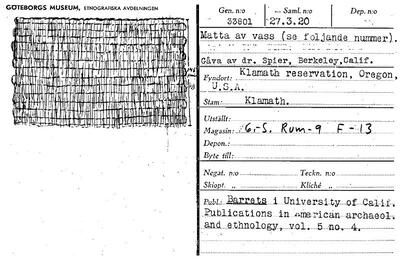 GÖTEBORGS MUSEUM, ETNOGRAFISKA AVDELNINGEN
Gen. n:o Saml. n:o Dep. n:o
33801 27.3.20
Matta av vass (se följande nummer).
Gåva av dr. Spier, Berkeley, Calif.
Fyndort: Klamath reservation, Oregon,
U.S.A.
Stam: Klamath.
Utställt:
Magasin: 6-S. Rum-9 F-13
Depon.:
Byte till:
Negat. n:o Teckn. n:o
Skiopt. „ Kliché „
Publ: Barrets i University of Calif.
Publications in american archaeol.
and ethnology, vol. 5 no. 4.